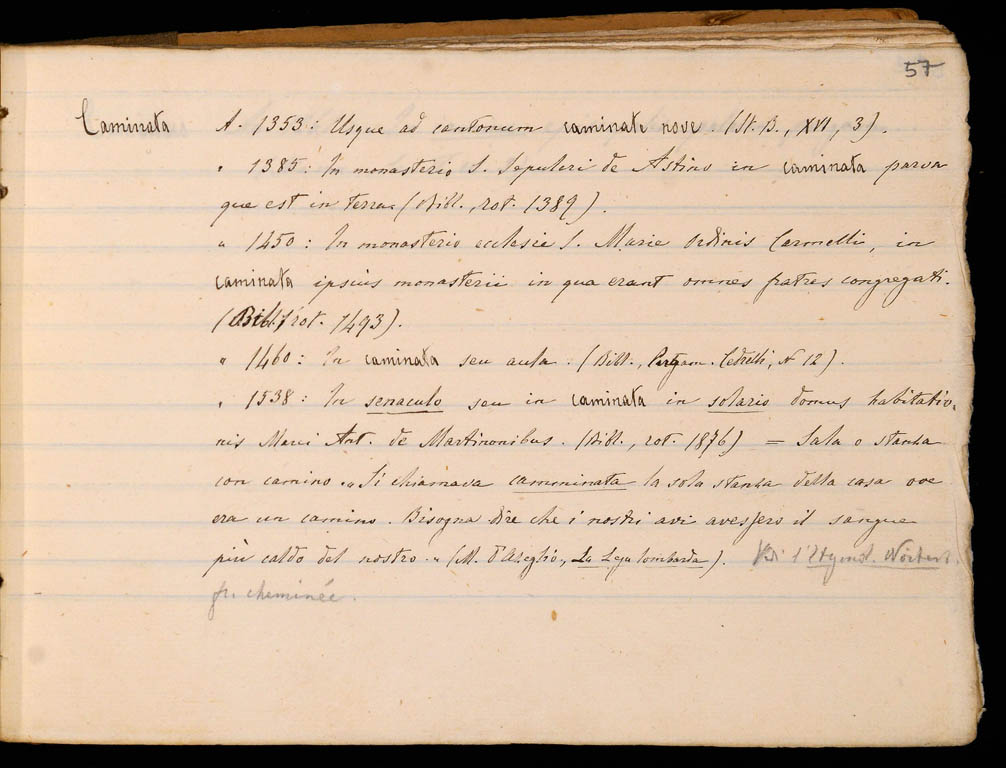 57
Caminata A. 1353: Usque ad cantonum caminate nove. (St. B., XVI, 3).
" 1385: In monasterio S. Sepulcri de Astino in caminata parva
que est in terra. (Bibl., rot. 1389).
" 1450: In monasterio ecclesie S. Marie Ordinis Carmelli, in
caminata ipsius monasterii in qua erant omnes fratres congregati.
(Bibl., rot. 1493).
" 1460: In caminata seu aula. (Bibl., Pergam. Cedrelli, N 12).
" 1538: In senaculo seu in caminata in solario domus habitatio-
nis Marci Ant. de Martinonibus. (Bibl., rot. 1876) = Sala o stanza
con camino. "Si chiamava camminata la sola stanza della casa ove
era un camino. Bisogna dire che i nostri avi avessero il sangue
più caldo del nostro." (M. d'Azeglio, La Lega lombarda). Vedi l'Etymol. Wörterb.
fr. cheminée.